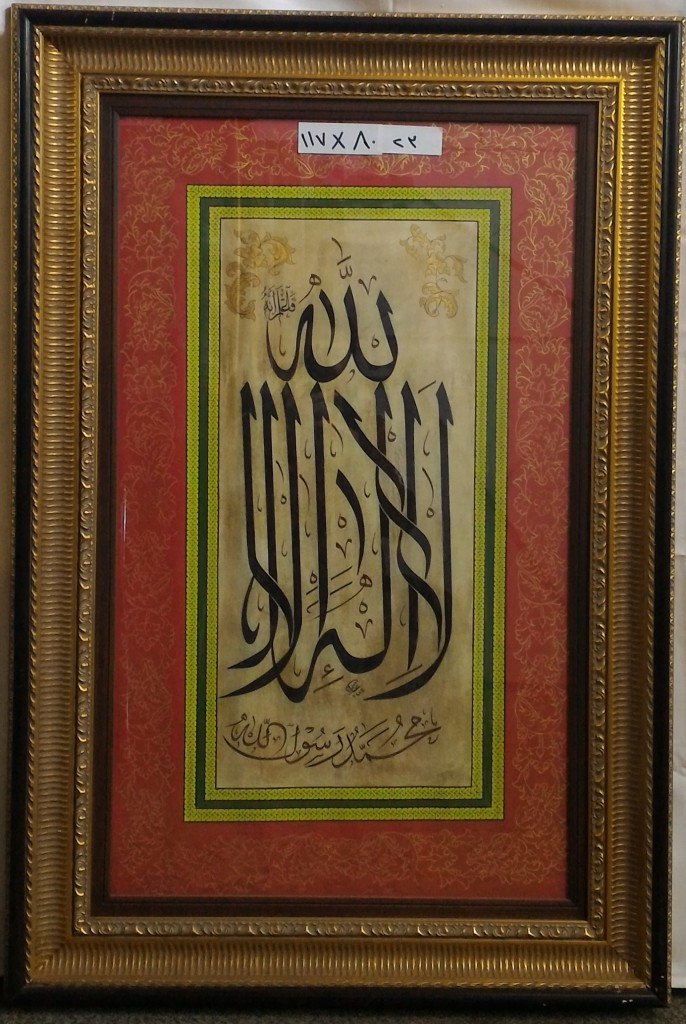 ١١٧X٨٠
فَاعْلَمْ أَنَّهُ
لَا إِلٰهَ إِلَّا اللَّهُ
مُحَمَّدٌ رَسُولُ اللّٰه